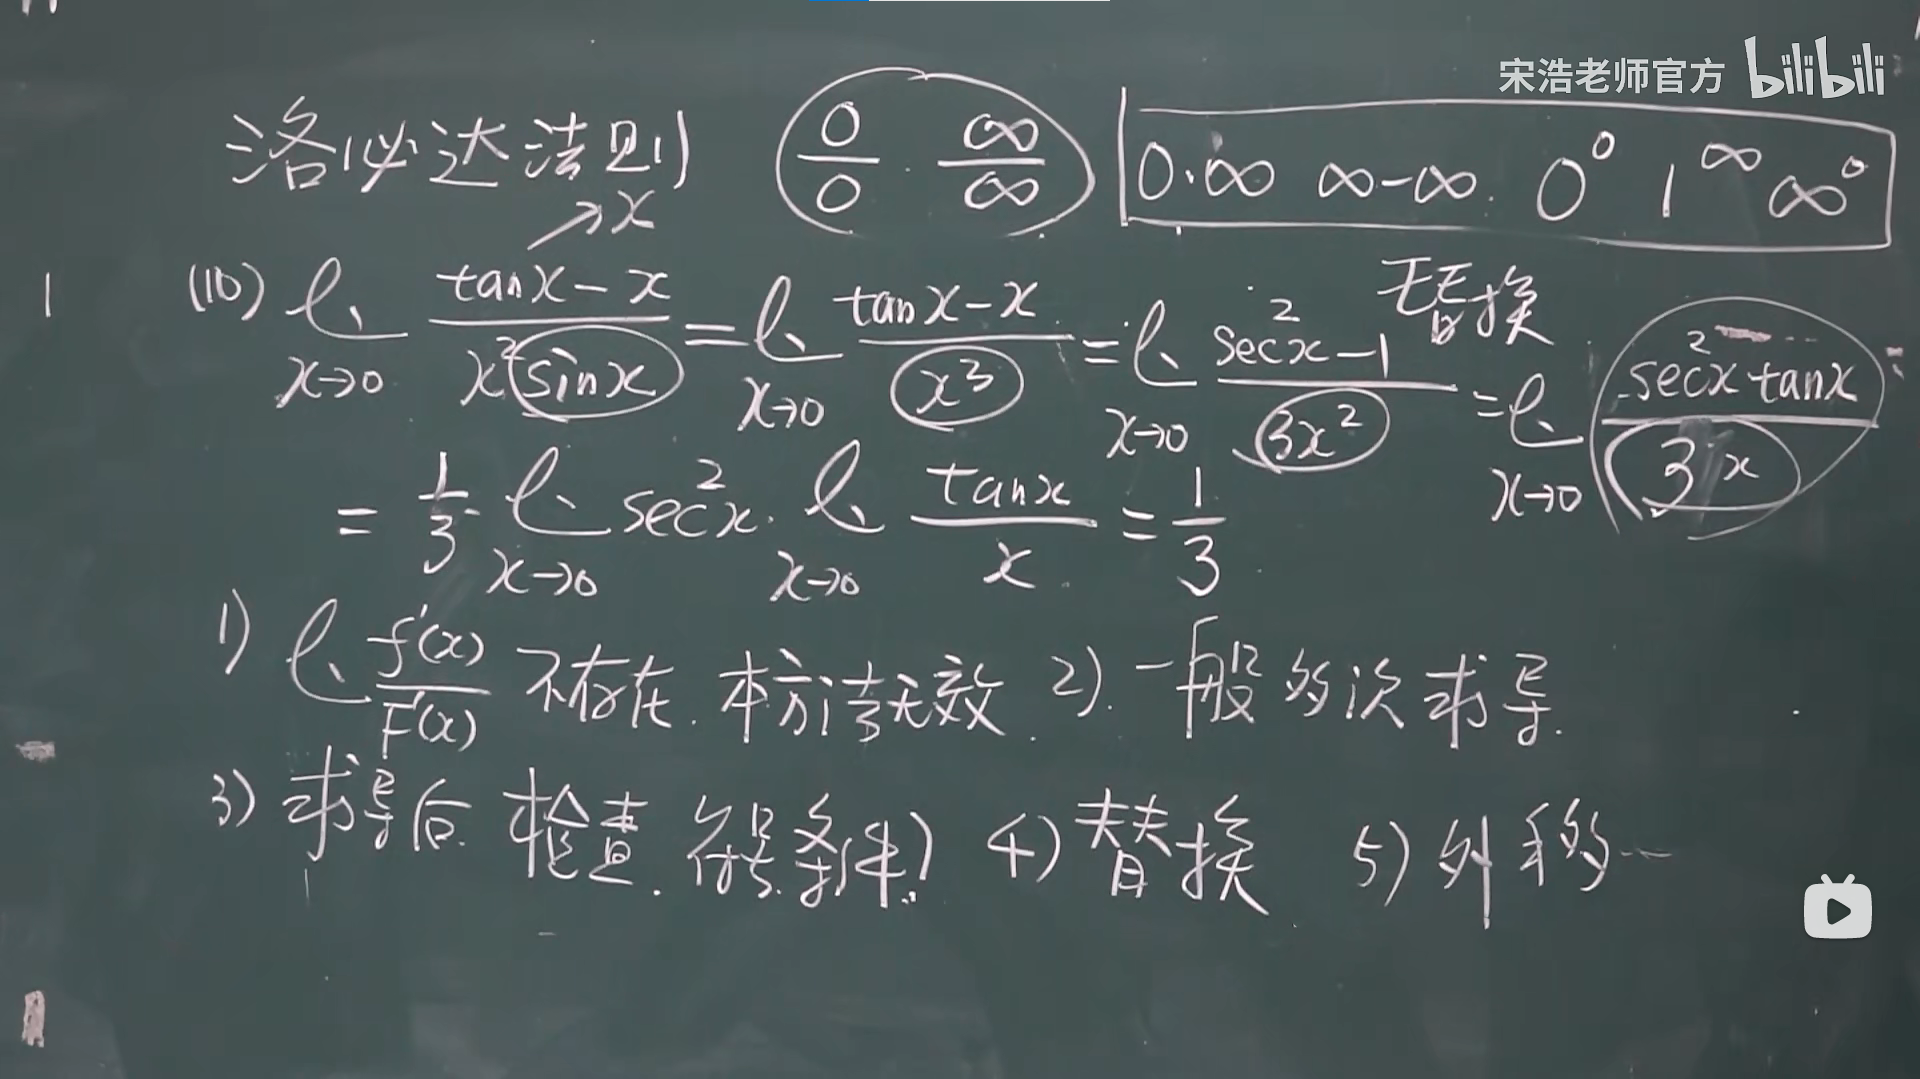 宋浩老师官方 bilibili
洛必达法则 0/0 ∞/∞ 0·∞ ∞-∞ 0⁰ 1^∞ ∞⁰
→x
替换
1 (10) lim_{x→0} (tanx-x)/(x²sinx) = lim_{x→0} (tanx-x)/x³ = lim_{x→0} (sec²x-1)/(3x²) = lim_{x→0} (sec²x tanx)/(3x)
= 1/3 · lim_{x→0} sec²x · lim_{x→0} tanx/x = 1/3
1) lim f'(x)/F'(x) 不存在. 本方法无效. 2). 一般多次求导.
3) 求导后 检查. 符合条件? 4) 替换 5) 外移…